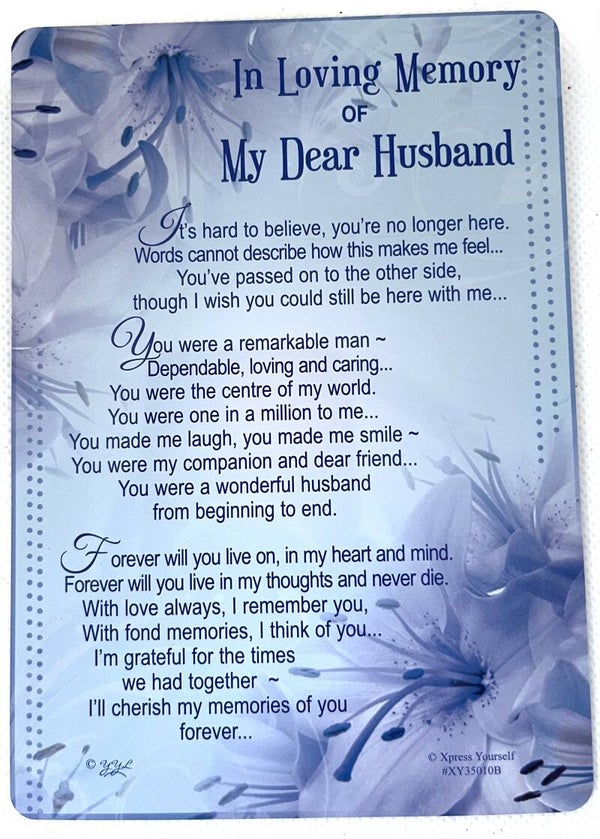 In Loving Memory
OF
My Dear Husband
It's hard to believe, you're no longer here.
Words cannot describe how this makes me feel...
You've passed on to the other side,
though I wish you could still be here with me...
You were a remarkable man ~
Dependable, loving and caring...
You were the centre of my world.
You were one in a million to me...
You made me laugh, you made me smile ~
You were my companion and dear friend...
You were a wonderful husband
from beginning to end.
Forever will you live on, in my heart and mind.
Forever will you live in my thoughts and never die.
With love always, I remember you,
With fond memories, I think of you...
I'm grateful for the times
we had together ~
I'll cherish my memories of you
forever...
© YYL
© Xpress Yourself
#XY35010B